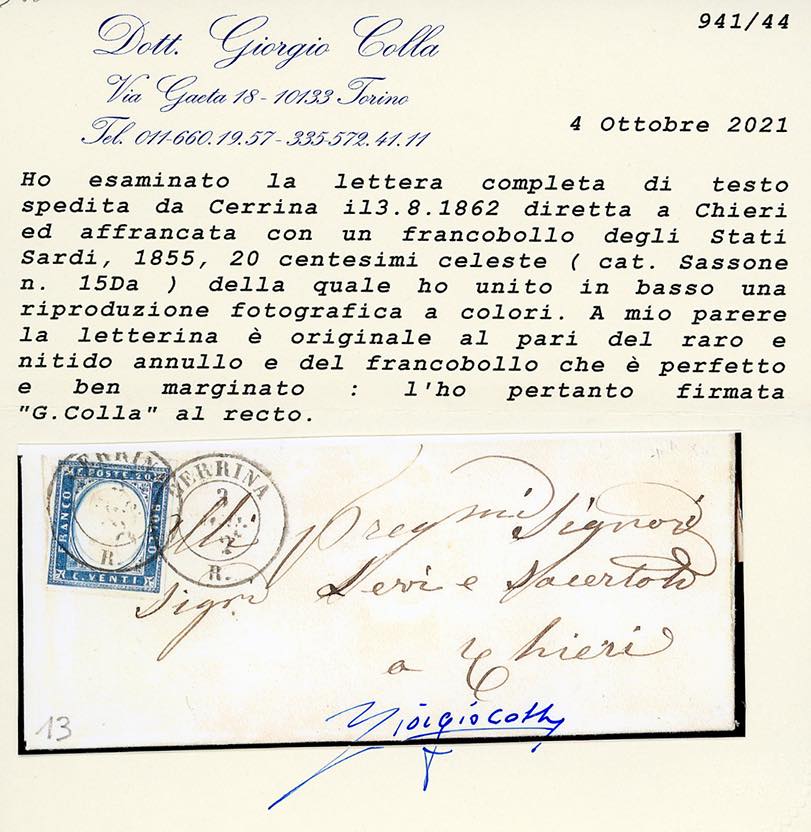 941/44
Dott. Giorgio Colla
Via Gaeta 18 - 10133 Torino
Tel. 011-660.19.57 - 335-572.41.11
4 Ottobre 2021
Ho esaminato la lettera completa di testo
spedita da Cerrina il3.8.1862 diretta a Chieri
ed affrancata con un francobollo degli Stati
Sardi, 1855, 20 centesimi celeste ( cat. Sassone
n. 15Da ) della quale ho unito in basso una
riproduzione fotografica a colori. A mio parere
la letterina è originale al pari del raro e
nitido annullo e del francobollo che è perfetto
e ben marginato : l'ho pertanto firmata
"G.Colla" al recto.
CERRINA
R.
CERRINA
3
R.
C. POSTE 20
FRANCO
BOLLO
C. VENTI
alli Pregmi Signori
Sigri Levi e Sacerdote
a Chieri
13
Giorgio Colla